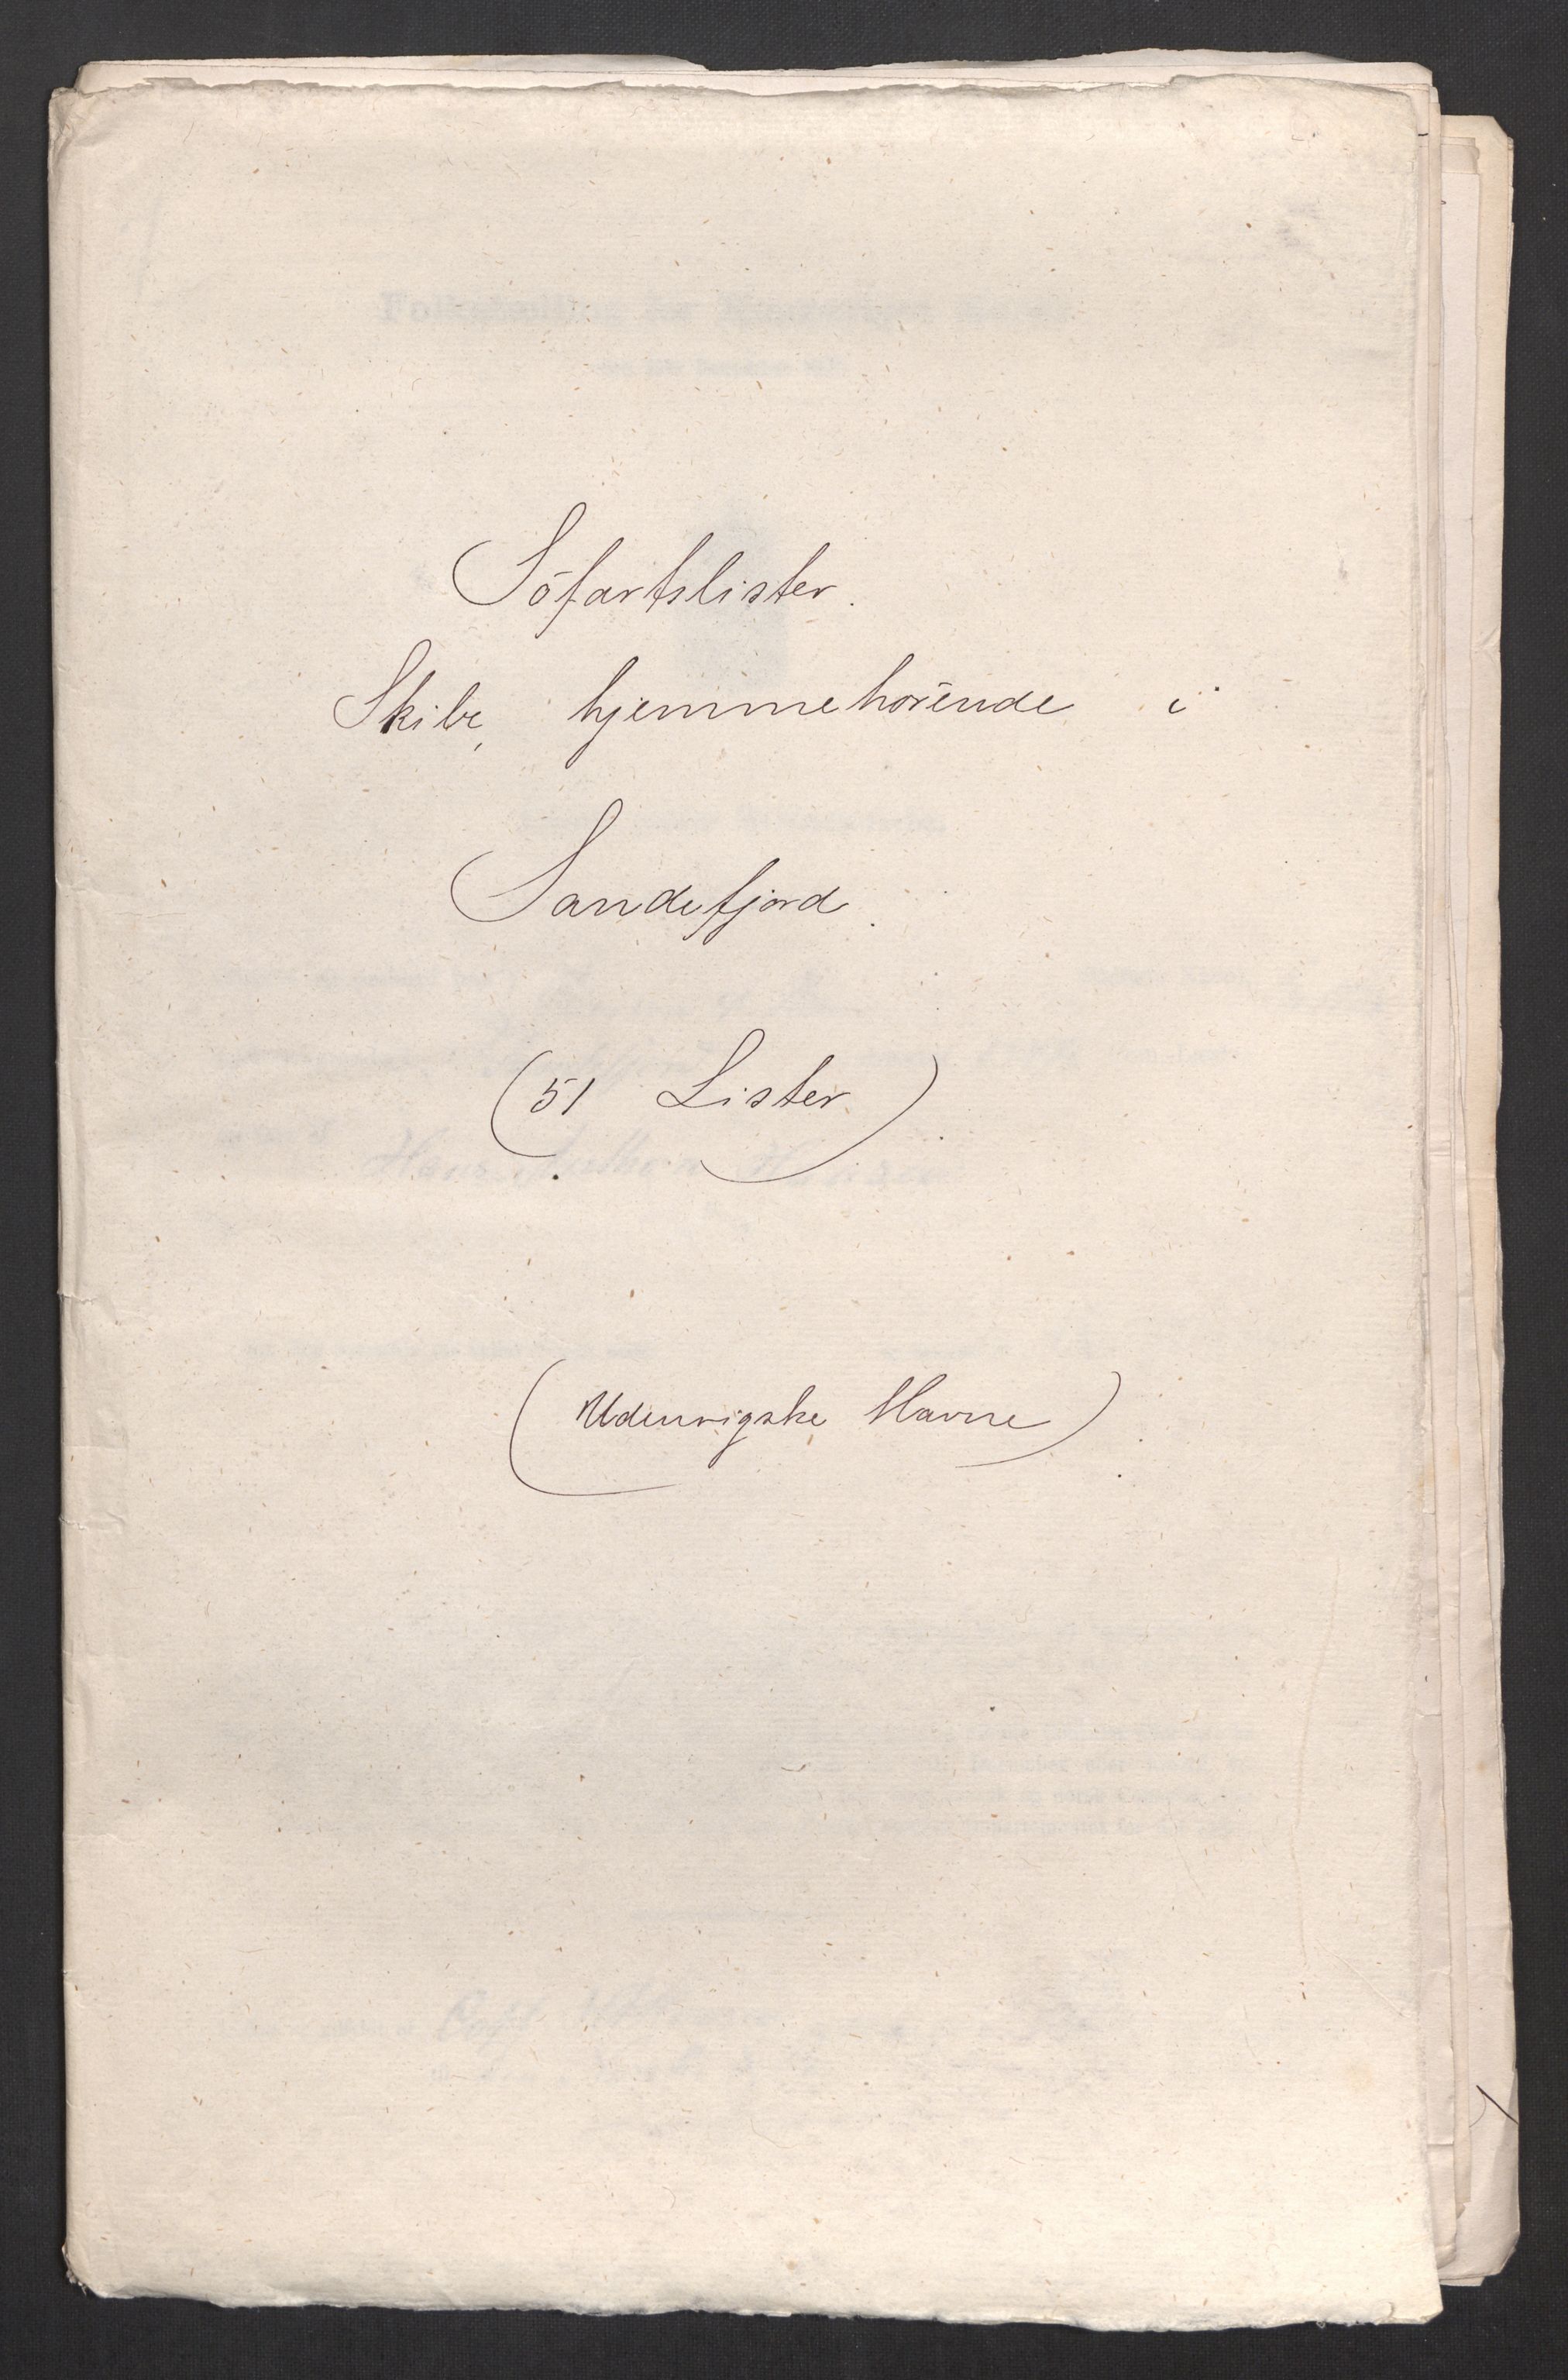 Söfartslister.
Skibe, hjemmehörende i
Sandefjord.
(51 Lister)
(Udenrigske Havne)